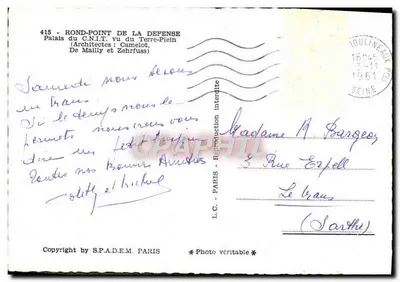 415 - ROND-POINT DE LA DEFENSE
Palais du C.N.I.T. vu du Terre-Plein
(Architectes : Camelot,
De Mailly et Zehrfuss)
Samedi nous serons
au Mans
Si le temps nous le
permet nous irons vous
dire un petit bonjour
Toutes nos bonnes Amitiés
et Michel
Copyright by S.P.A.D.E.M. PARIS
* Photo véritable *
L.C. - PARIS - Reproduction interdite
MOULINEAUX
16H45
-11
1961
SEINE
Madame A. Bargeon
3 Rue
Le Mans
(Sarthe)
CPAPHIL